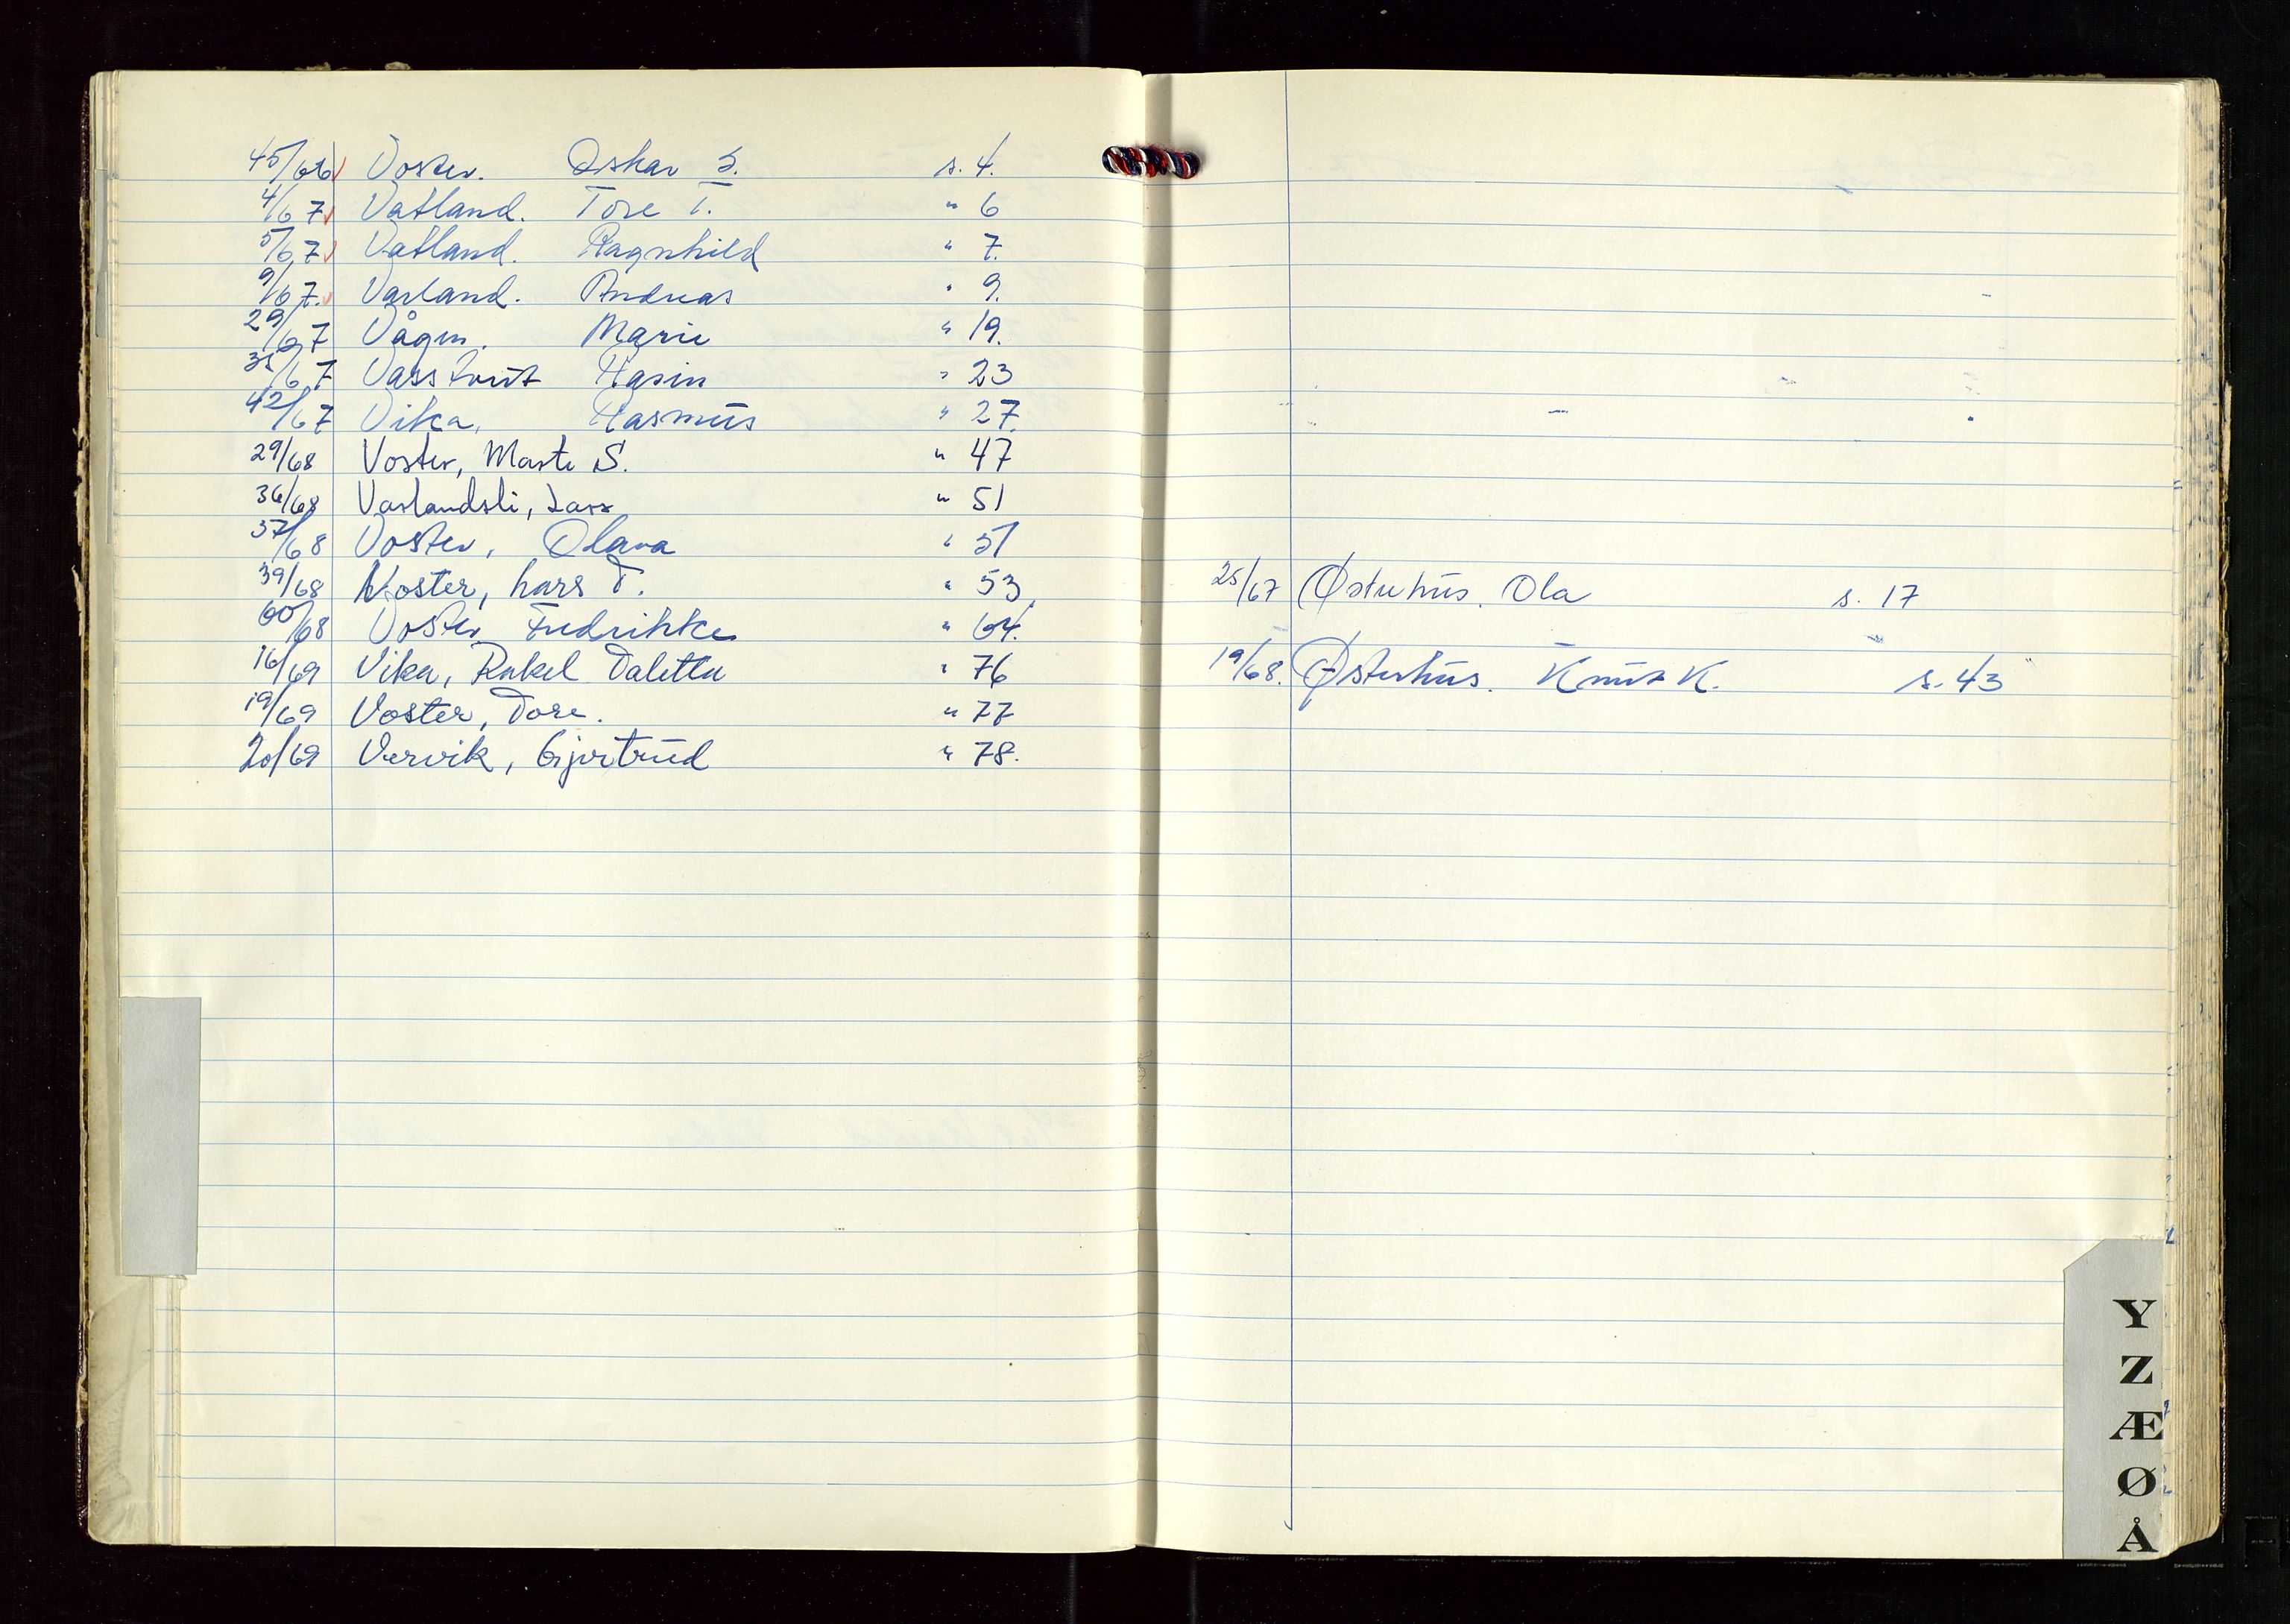 45/66 Voster. Oskar S. s. 4.
4/67 Vatland. Tore T. " 6
5/67 Vatland. Ragnhild " 7.
9/67. Varland. Andreas " 9.
29/67 Vågen. Marie " 19.
35/67 Vasstveit Hasin " 23
42/67 Vika, Rasmus " 27.
29/68 Voster, Marte S. " 47
36/68 Varlandsli, Lars " 51
37/68 Voster, Olava " 51
39/68 Voster, Lars T. " 53
60/68 Voster, Fredrikke " 64.
16/69 Vika, Rakel Taletta " 76
19/69 Voster, Tore. " 77
20/69 Vervik, Gjertrud " 78.
25/67 Østerhus. Ola s. 17
19/68. Østerhus. Knut K. s. 43
Y
Z
Æ
Ø
Å